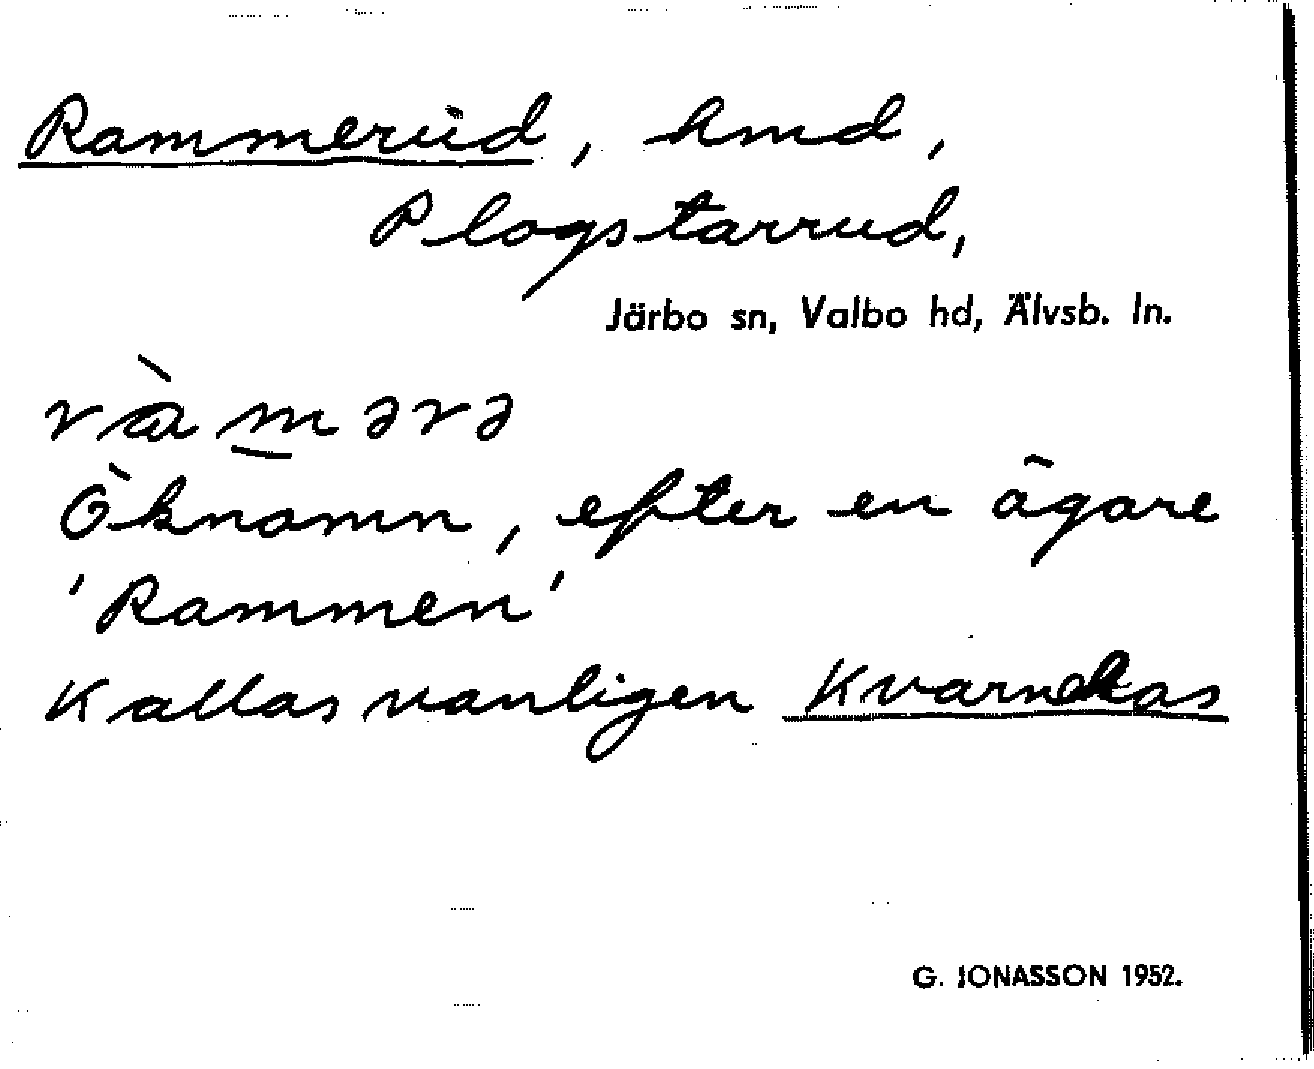 Rammerud, hmd,
Plogstarrud,
Järbo sn, Valbo hd, Älvsb. ln.
ràm̲ərə
Öknamn, efter en ägare
'Rammen'
Kallas vanligen Kvarnekas
G. JONASSON 1952.